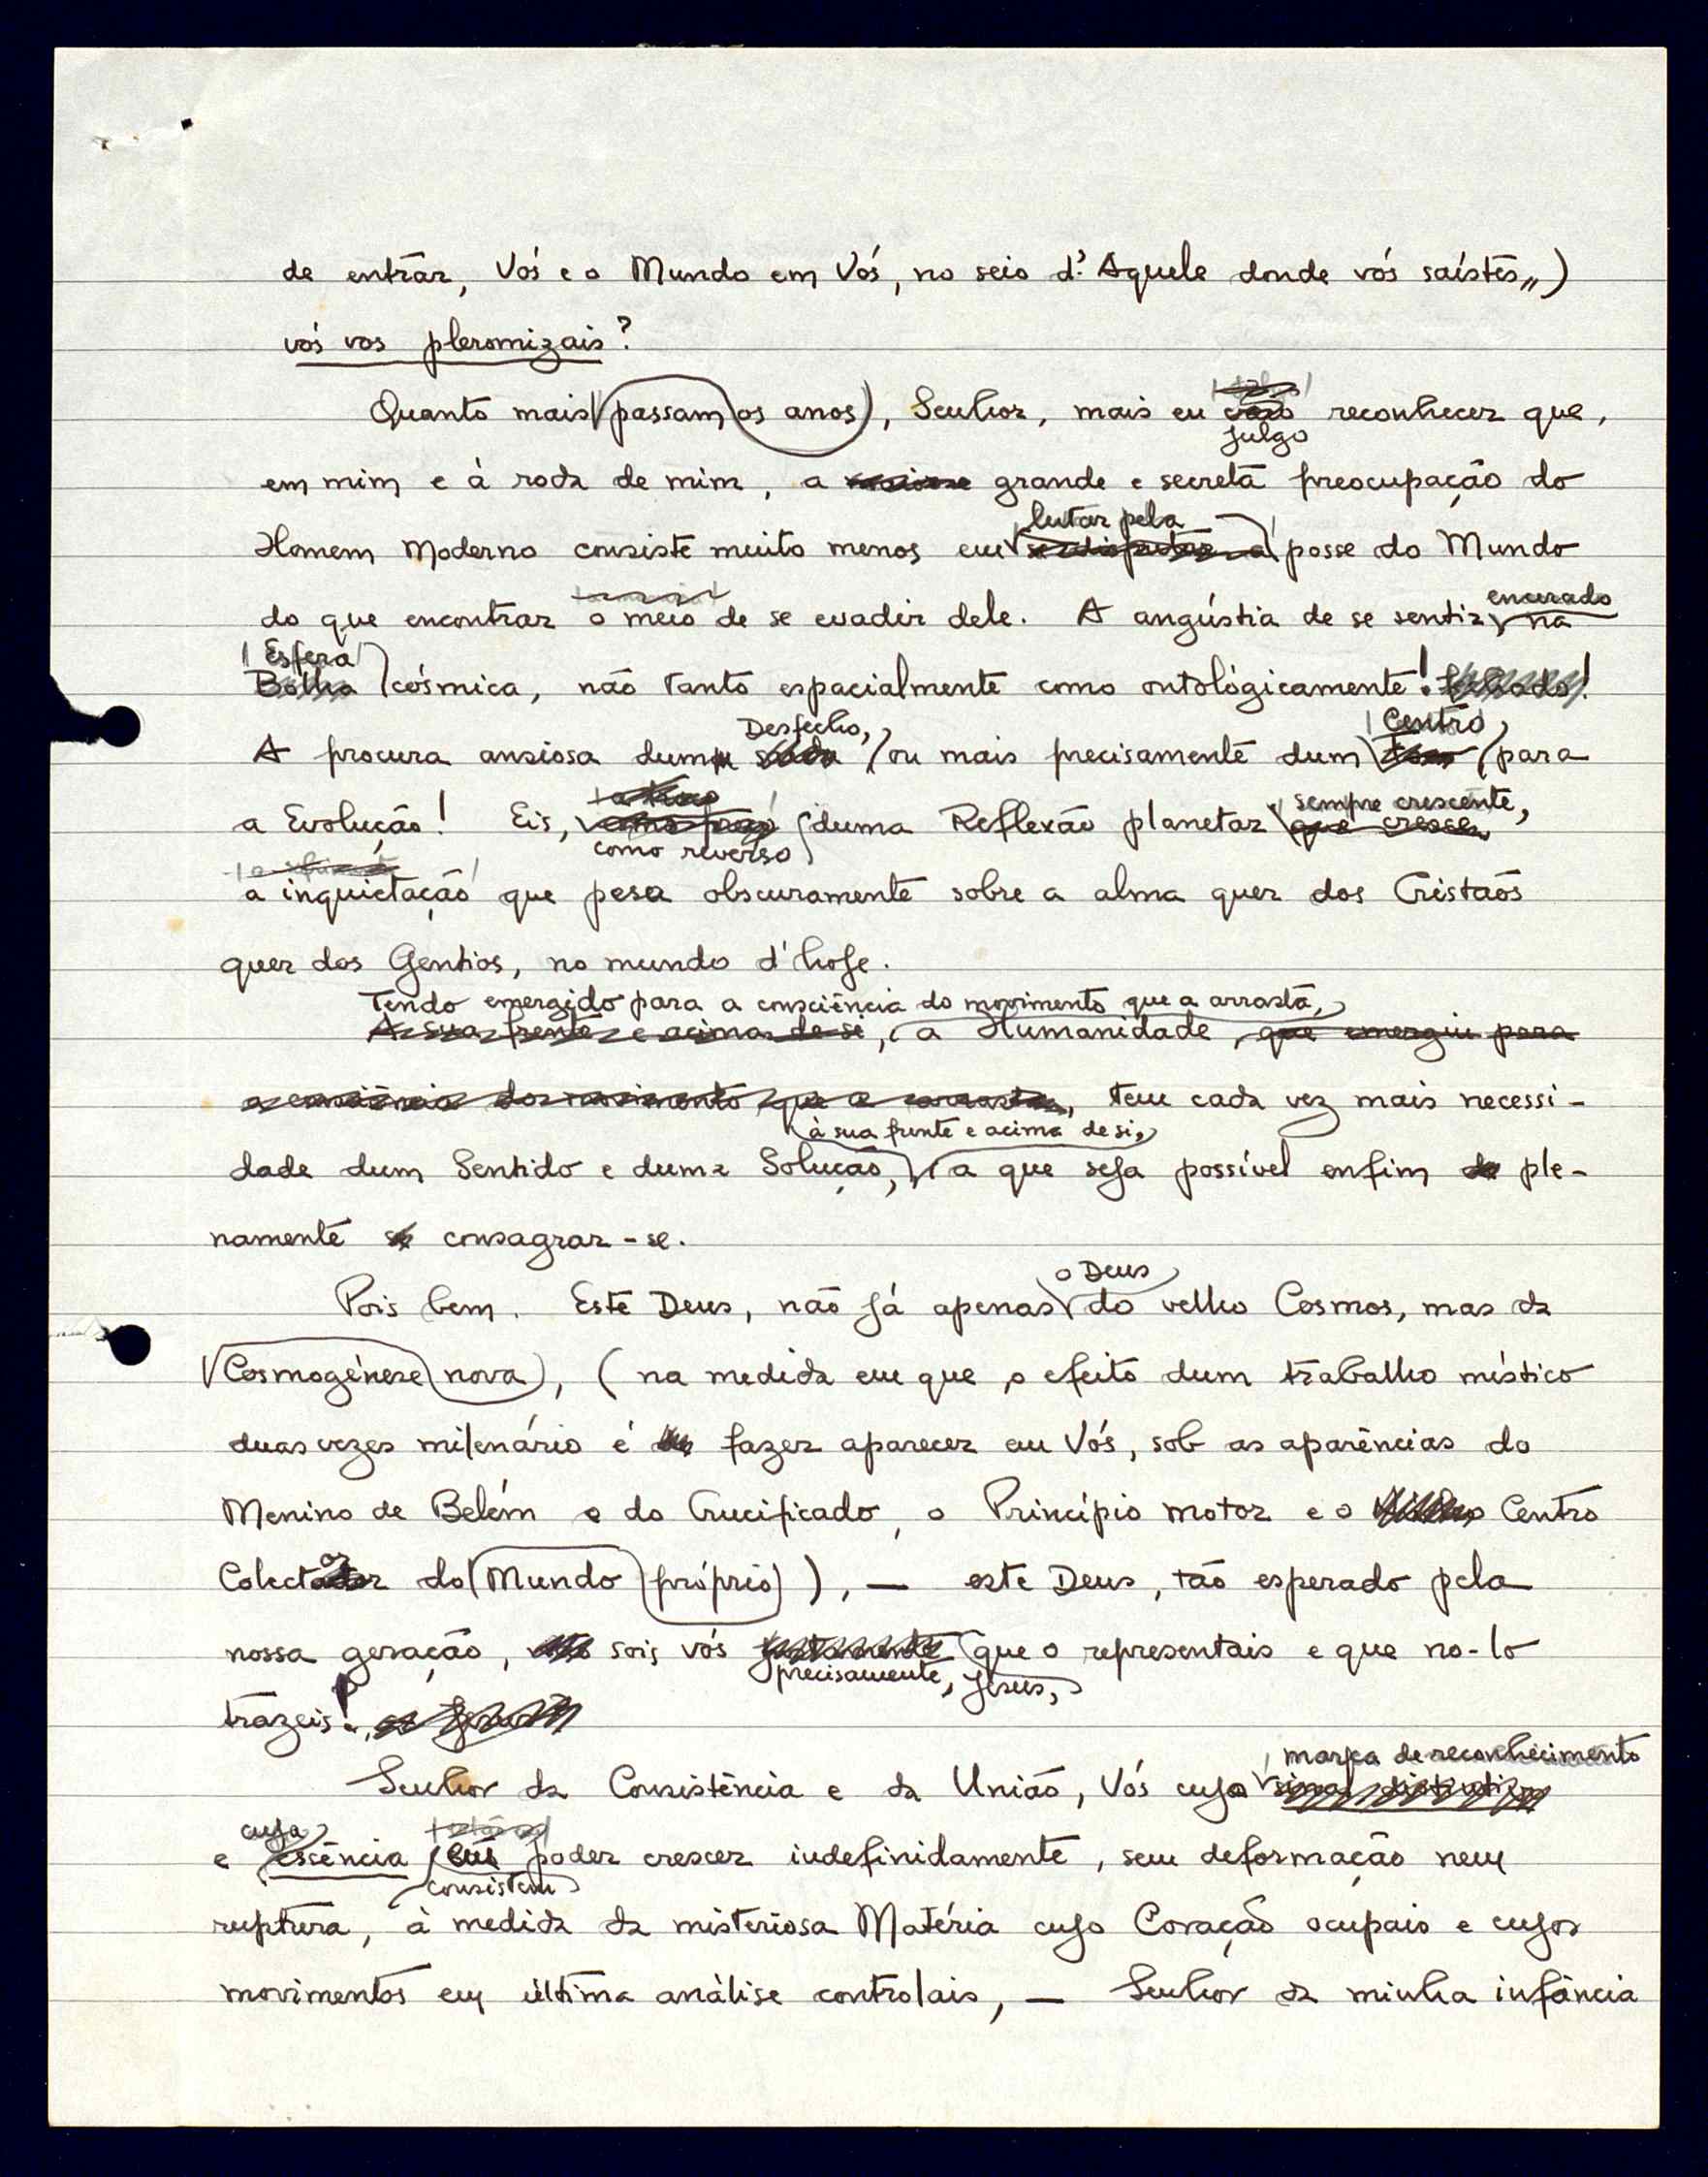 de entrar, Vós e o Mundo em Vós, no seio d'Aquele donde vós saístes,,)
vós vos pleromizais?
Quanto mais passam os anos, Senhor, mais eu julgo reconhecer que,
em mim e à roda de mim, a grande e secreta preocupação do
lutar pela
Homem Moderno consiste muito menos em posse do Mundo
encerado
do que encontrar o meio de se evadir dele. A angústia de se sentir na
Esfera
Bolha cósmica, não tanto espacialmente como ontológicamente!
Desfecho, Centro
A procura ansiosa dum ou mais precisamente dum para
sempre crescente,
a Evolução! Eis, duma Reflexão planetar que cresce
como reverso
a inquietação que pesa obscuramente sobre a alma quer dos Cristãos
quer dos Gentios, no mundo d'hoje.
Tendo emergido para a consciência do movimento que a arrasta,
A sua frente e acima de si, a Humanidade, que emergiu para
a consciência do movimento que a arrasta, tem cada vez mais necessi-
à sua frente e acima de si,
dade dum Sentido e duma Solução, a que seja possível enfim de ple-
namente se consagrar-se.
o Deus
Pois bem. Este Deus, não já apenas do velho Cosmos, mas da
Cosmogénese nova, (na medida em que o efeito dum trabalho místico
duas vezes milenário é fazer aparecer em Vós, sob as aparências do
Menino de Belém e do Crucificado, o Princípio motor e o Centro
Colector do Mundo próprio), — este Deus, tão esperado pela
nossa geração, sois vós justamente que o representais e que no-lo
precisamente, Jesus,
trazeis!
marca de reconhecimento
Senhor da Consistência e da União, Vós cuja sinal distintivo
cuja
e essência poder crescer indefinidamente, sem deformação nem
consistem
ruptura, à medida da misteriosa Matéria cujo Coração ocupais e cujos
movimentos em última análise controlais, — Senhor da minha infância